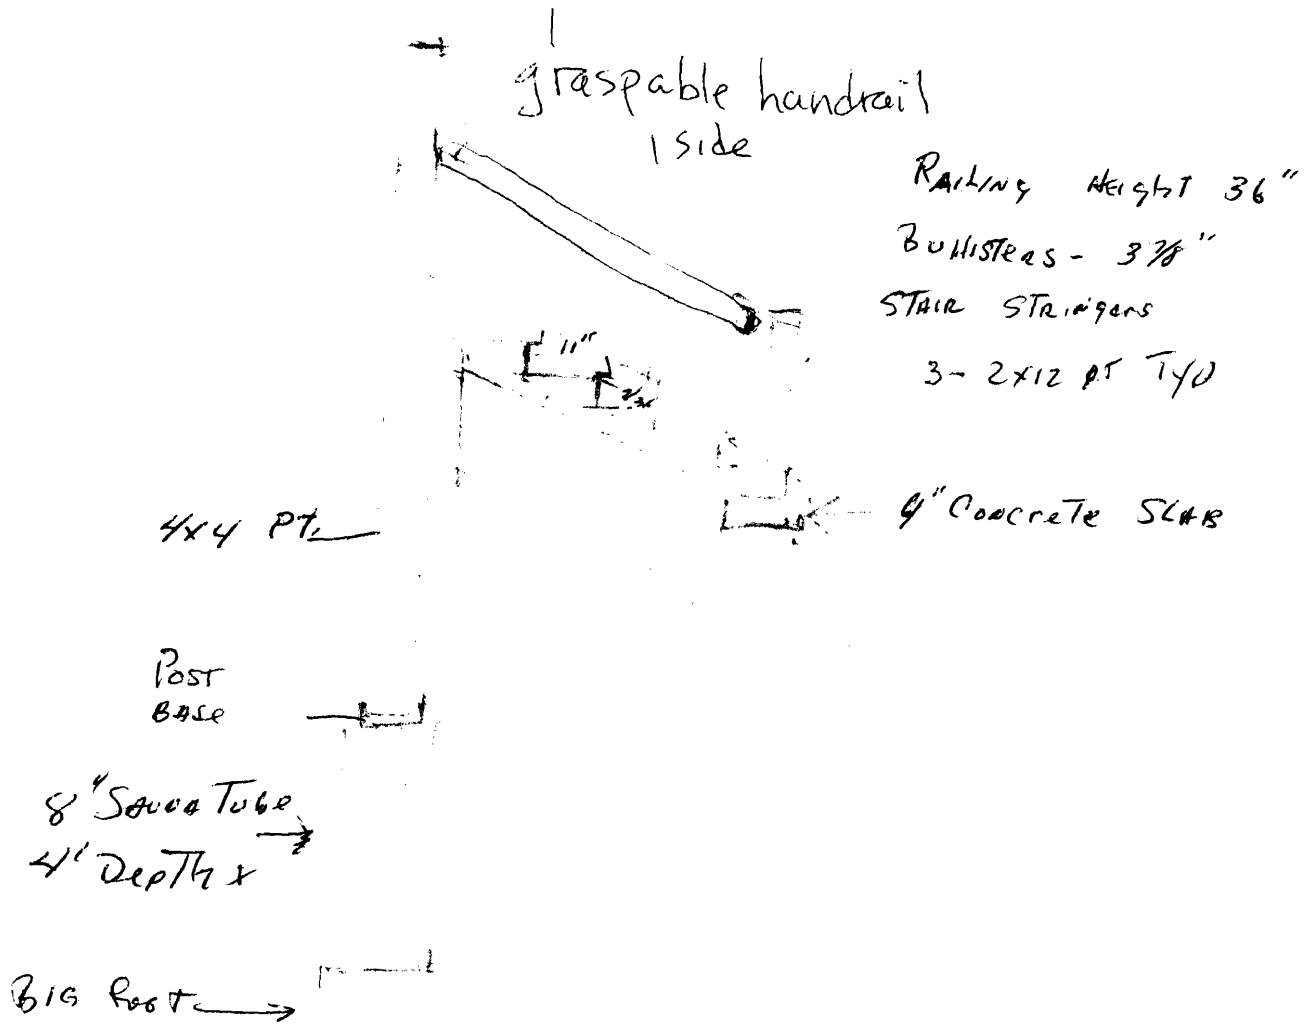 graspable handrail
1 side
Railing Height 36"
Bullisters - 3 7/8"
Stair Stringers
3- 2x12 PT Typ
11"
4x4 PT.
4" Concrete Slab
Post
Base
8" Sauna Tube
4' Depth
Big Foot